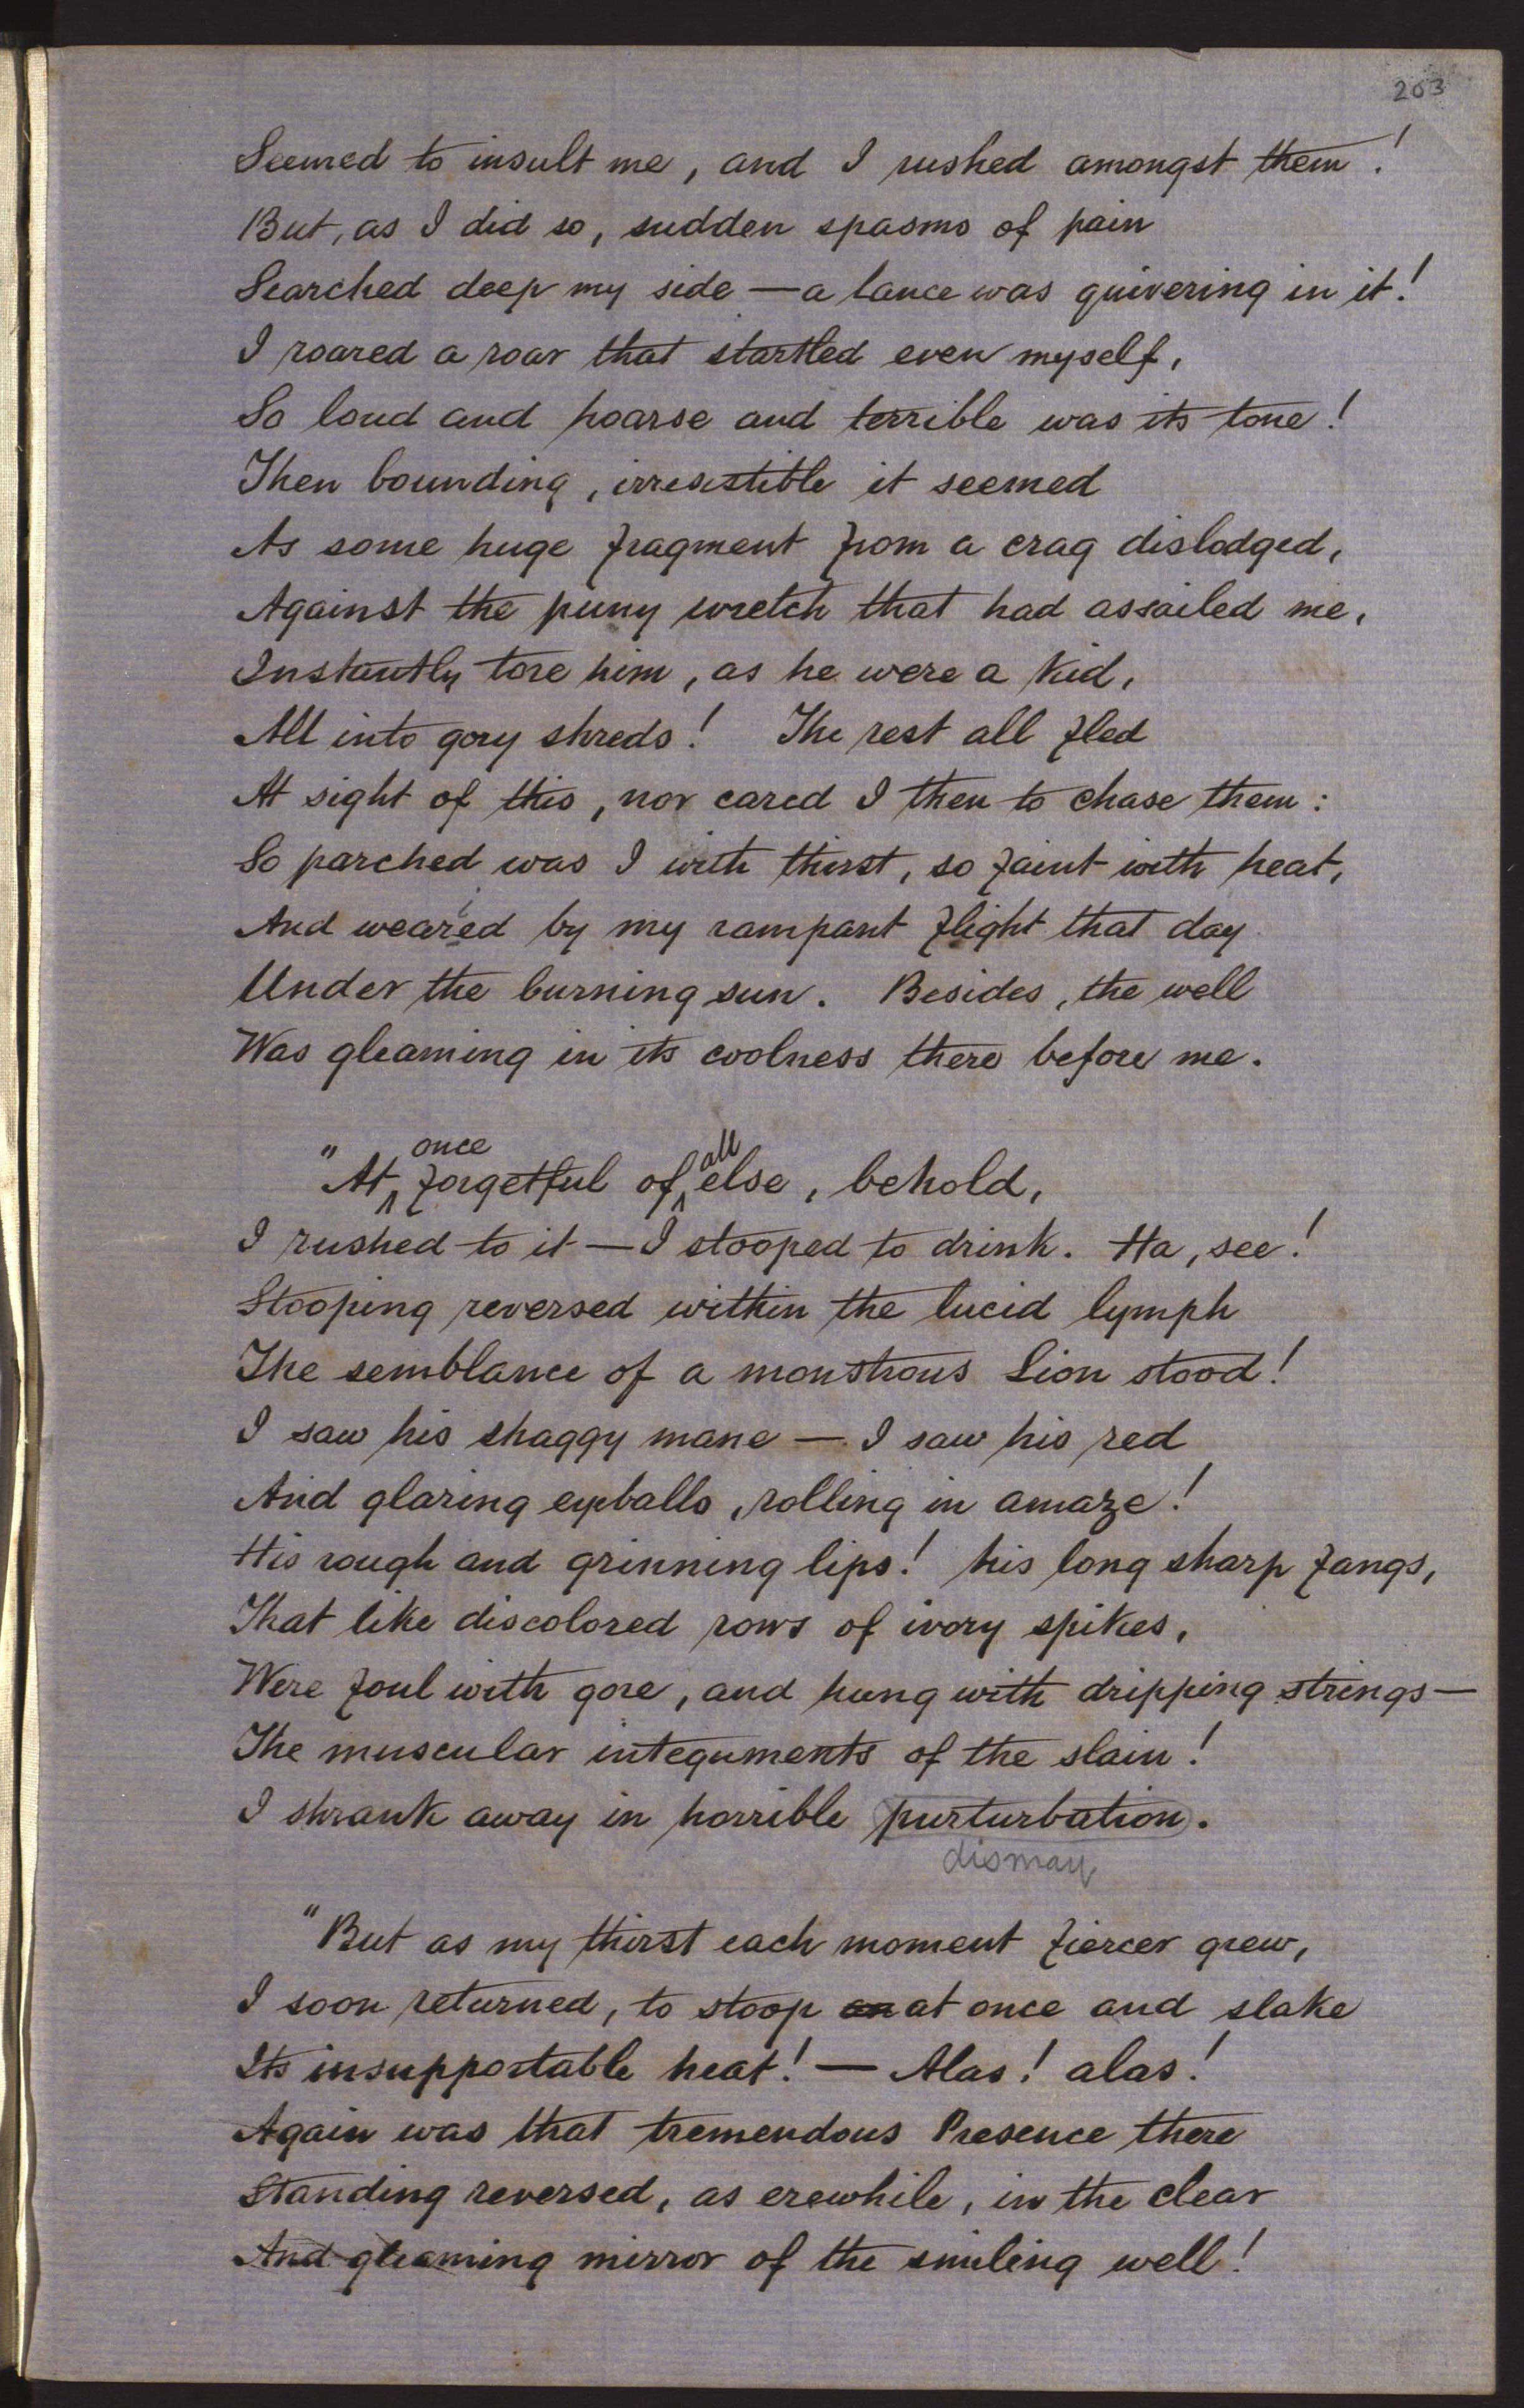 203
Seemed to insult me, and I rushed amongst them!
But, as I did so, sudden spasms of pain
Searched deep my side — a lance was quivering in it!
I roared a roar that startled even myself,
So loud and hoarse and terrible was its tone!
Then bounding, irresistible it seemed
As some huge fragment from a crag dislodged,
Against the puny wretch that had assailed me,
Instantly tore him, as he were a kid,
All into gory shreds! The rest all fled
At sight of this, nor cared I then to chase them:
So parched was I with thirst, so faint with heat,
And wearied by my rampant flight that day
Under the burning sun. Besides, the well
Was gleaming in its coolness there before me.
"At once forgetful of all else, behold,
I rushed to it — I stooped to drink. Ha, see!
Stooping reversed within the lucid lymph
The semblance of a monstrous Lion stood!
I saw his shaggy mane — I saw his red
And glaring eyeballs, rolling in amaze!
His rough and grinning lips! his long sharp fangs,
That like discolored rows of ivory spikes,
Were foul with gore, and hung with dripping strings —
The muscular integuments of the slain!
I shrank away in horrible purturbation.
dismay
"But as my thirst each moment fiercer grew,
I soon returned, to stoop an at once and slake
Its insupportable heat! — Alas! alas!
Again was that tremendous Presence there
Standing reversed, as erewhile, in the clear
And gleaming mirror of the smiling well!